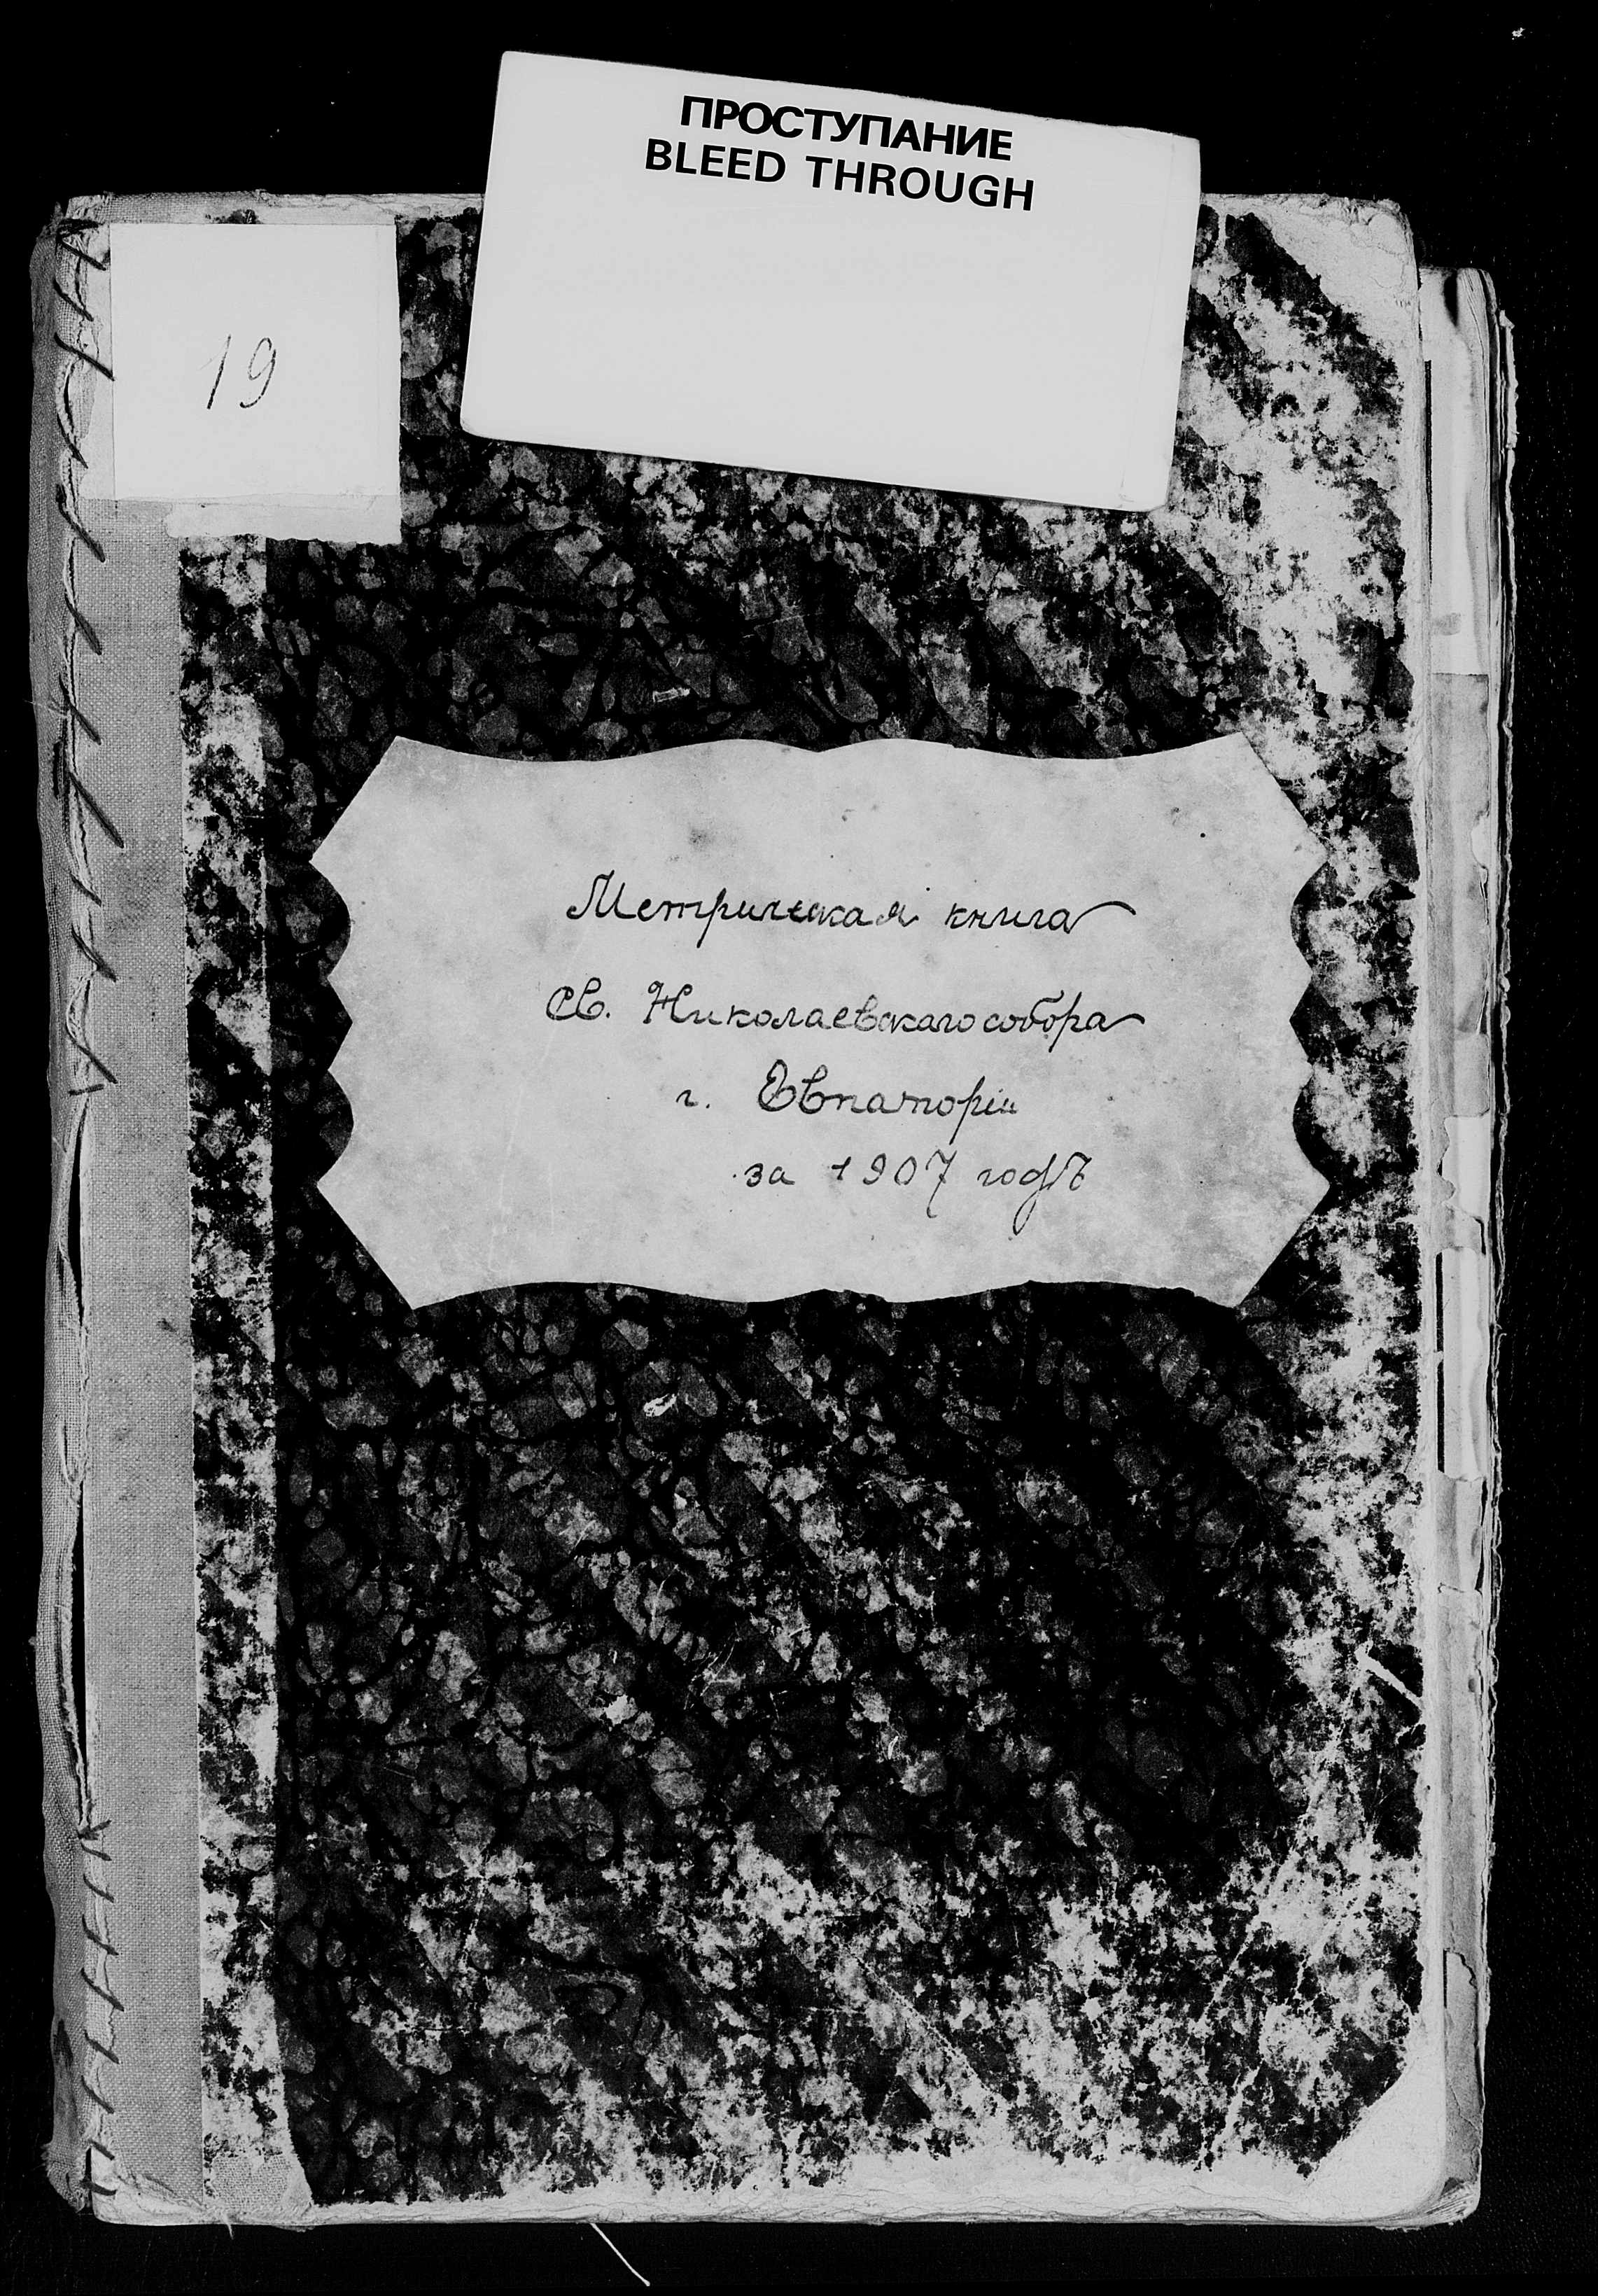 ПРОСТУПАНИЕ
BLEED THROUGH
19
Метрическая книга
Св. Николаевскаго собора
г. Евпаторіи
за 1907 годъ